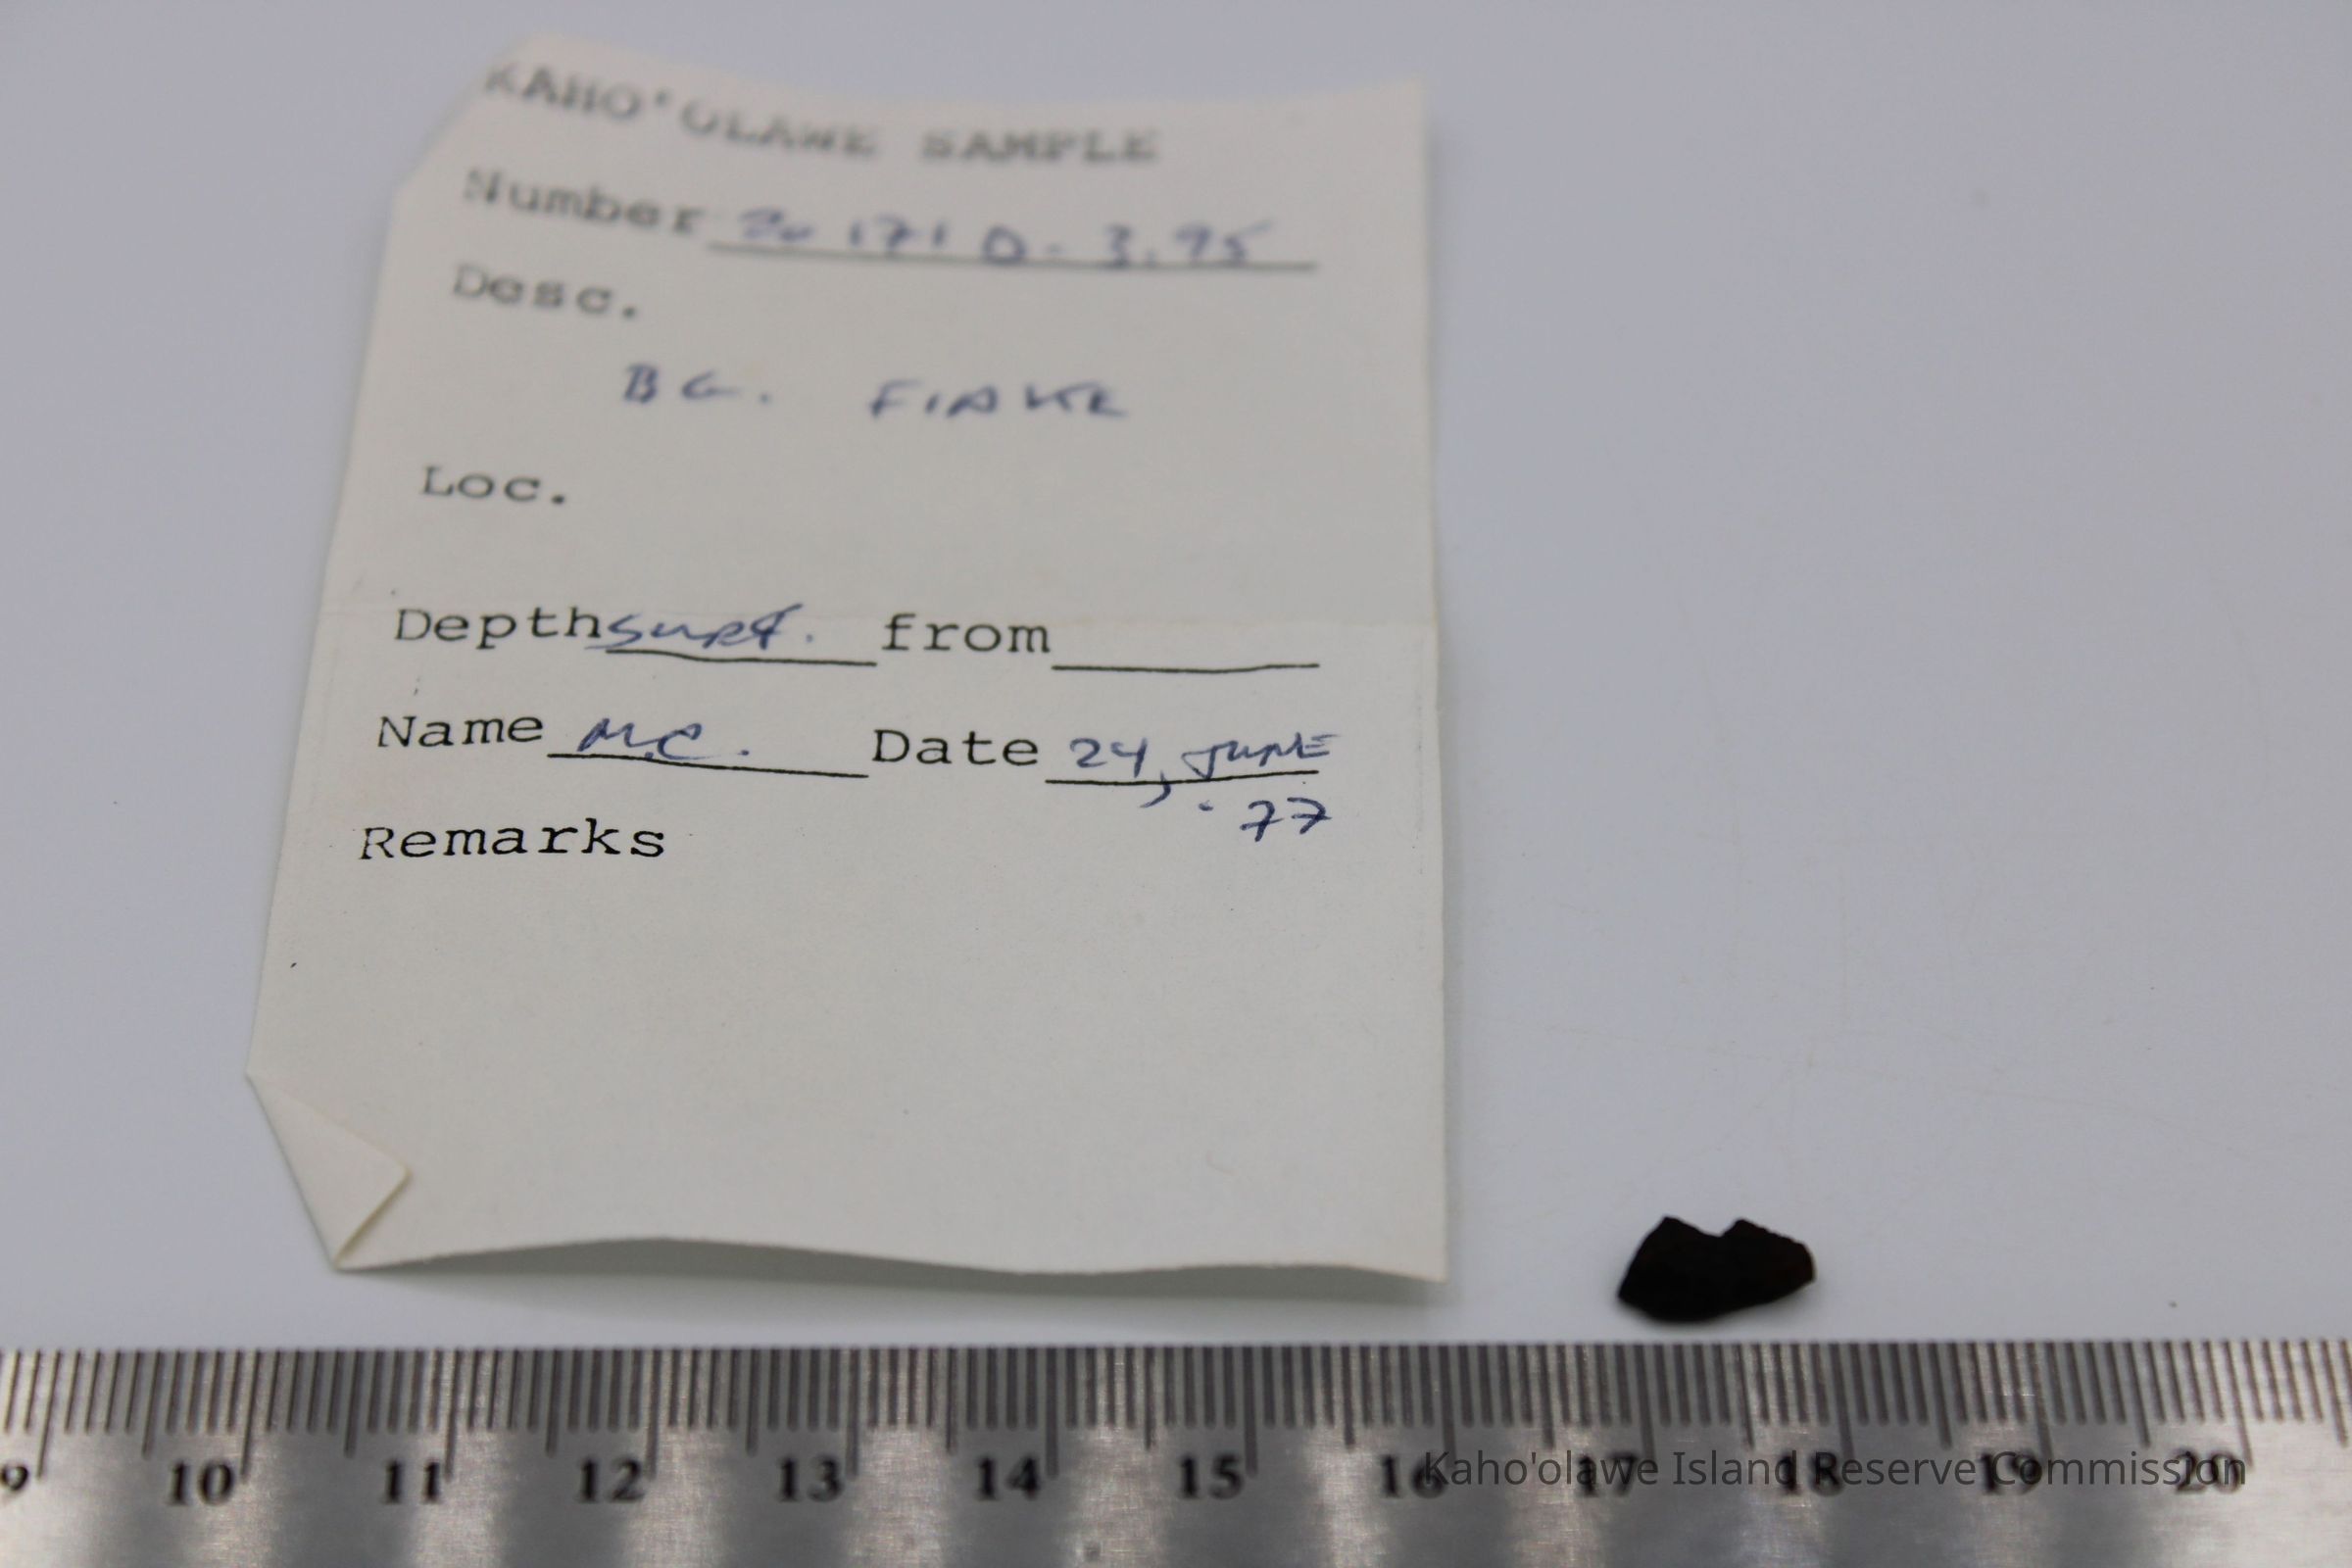 KAHO'OLAWE SAMPLE
Number 20 171 D - 3.95
Desc.
BG. FLAKE
Loc.
Depth surf. from
Name M.C. Date 24, JUNE
'77
Remarks
9 10 11 12 13 14 15 16 17 18 19 20
Kaho'olawe Island Reserve Commission